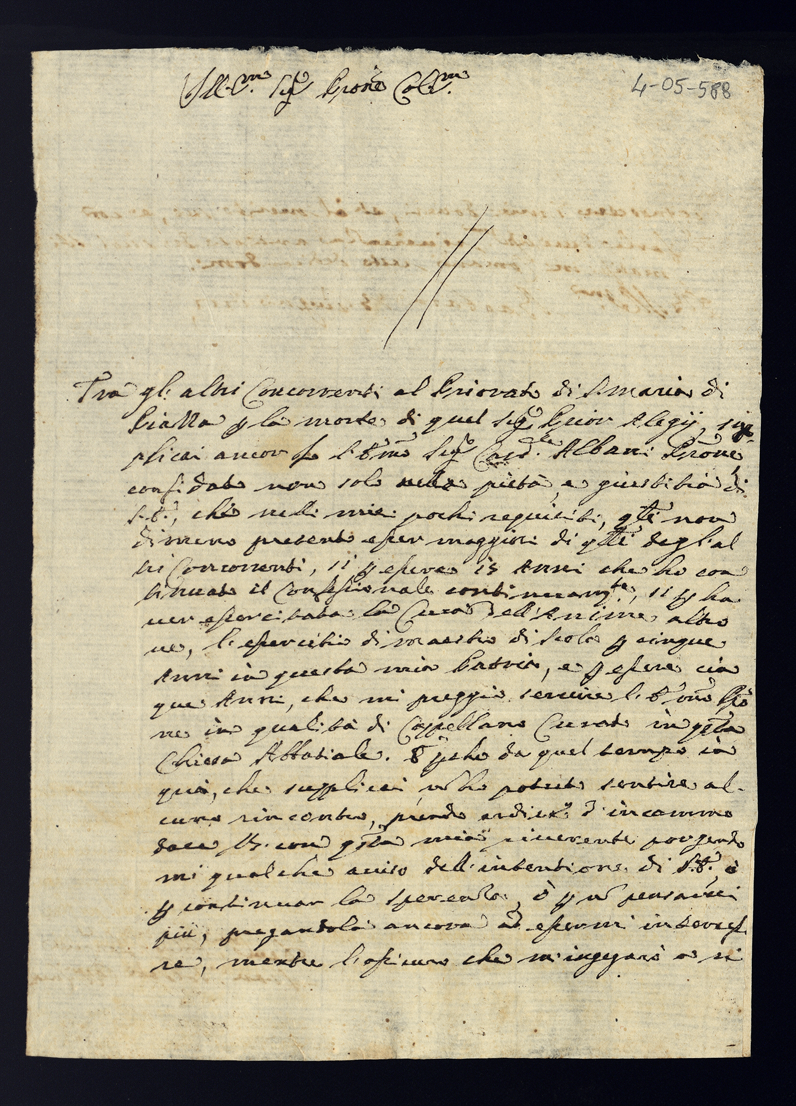 Ill.mo Sig.r Prone Col.mo
4-05-588
Tra gli altri Concorrenti al Priorato di S. Maria di
Piazza p la morte di quel Sig.r Prior Alegij, sup-
plicai ancor io l'E.mo Sig.r Card.le Albani Prone,
confidato non solo nella pietà, e giustitia di
S.E., che nelli miei pochi requisiti, q.li non
dimeno presento esser maggiori di q.lli degl'al
tri Concorrenti, si p essere 15 Anni che ho con
tinuato il Confessionale continuam.te, si p ha
ver esercitata la Cura dell'Anime altro
ve, l'esercitio di maestro di Scola p cinque
Anni in questa mia Patria, e p essere cin
que Anni, che mi preggio servire l'E.mo Pro
ne in qualità di Cappellano Curato in q.ta
Chiesa Abbatiale. E p che da quel tempo in
quà, che supplicai, nō ho potuto sentire al-
cuno rincontro, prendo ardire d'incommo
dare V.S. con q.ta mia riverente porgendo
mi qualche aviso dell'intentione di S.E., ò
p continuar la speranza, ò p nō pensarci
più, pregandola ancora ad essermi interces
re, mentre l'assicuro che m'ingegarò a ri